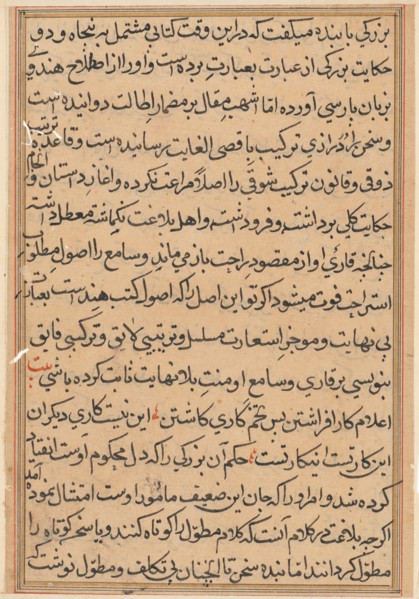 بزرکی با بنده میکفت که در این وقت کتابی مشتمل به پنجاه و دو
حکایت بزرکی از عبارت بعبارت برده است و اورا از اصطلاح هندوی
بزبان پارسی آورده اما اشهب مقال بر مضمار اطالت دوانیده است
و سخن را از درازی ترکیب باقصی الغایت رسانیده است و قاعده ترتیب
ذوقی و قانون ترکیب شوقی را اصلا مراعت نکرده و آغاز داستان و انجام
حکایت کلی برداشته و فرود اشته و اهل بلاغت نکماشته معطل داشته
چنانچه قاری او از مقصود راحت باز می ماند و سامع را اصول مطلوب
استراحت فوت میشود اکر تو این اصل را که اصول کتب هند است بعبارتی
بی نهایت و موجز استعارت مسلسل و ترتیبی لایق و ترکیبی فایق
بنویسی بر قاری و سامع او منت بلا نهایت ثابت کرده باشی بیت
اعلام کار افراشتن پس تخم کاری کاشتن این نیست کاری دیکران
این کار تست این کار تست حکم آن بزرکی را که دل محکوم اوست انقیاد
کرده شد و امر ورا که جان این ضعیف مامور اوست امتثال نموده آمد
اکرچه بلاغت در کلام آنست که کلام مطول را کوتاه کنند و یا سخن کوتاه را
مطول کردانند اما بنده سخن تا آنچنان بی تکلف و مطول نوشت که